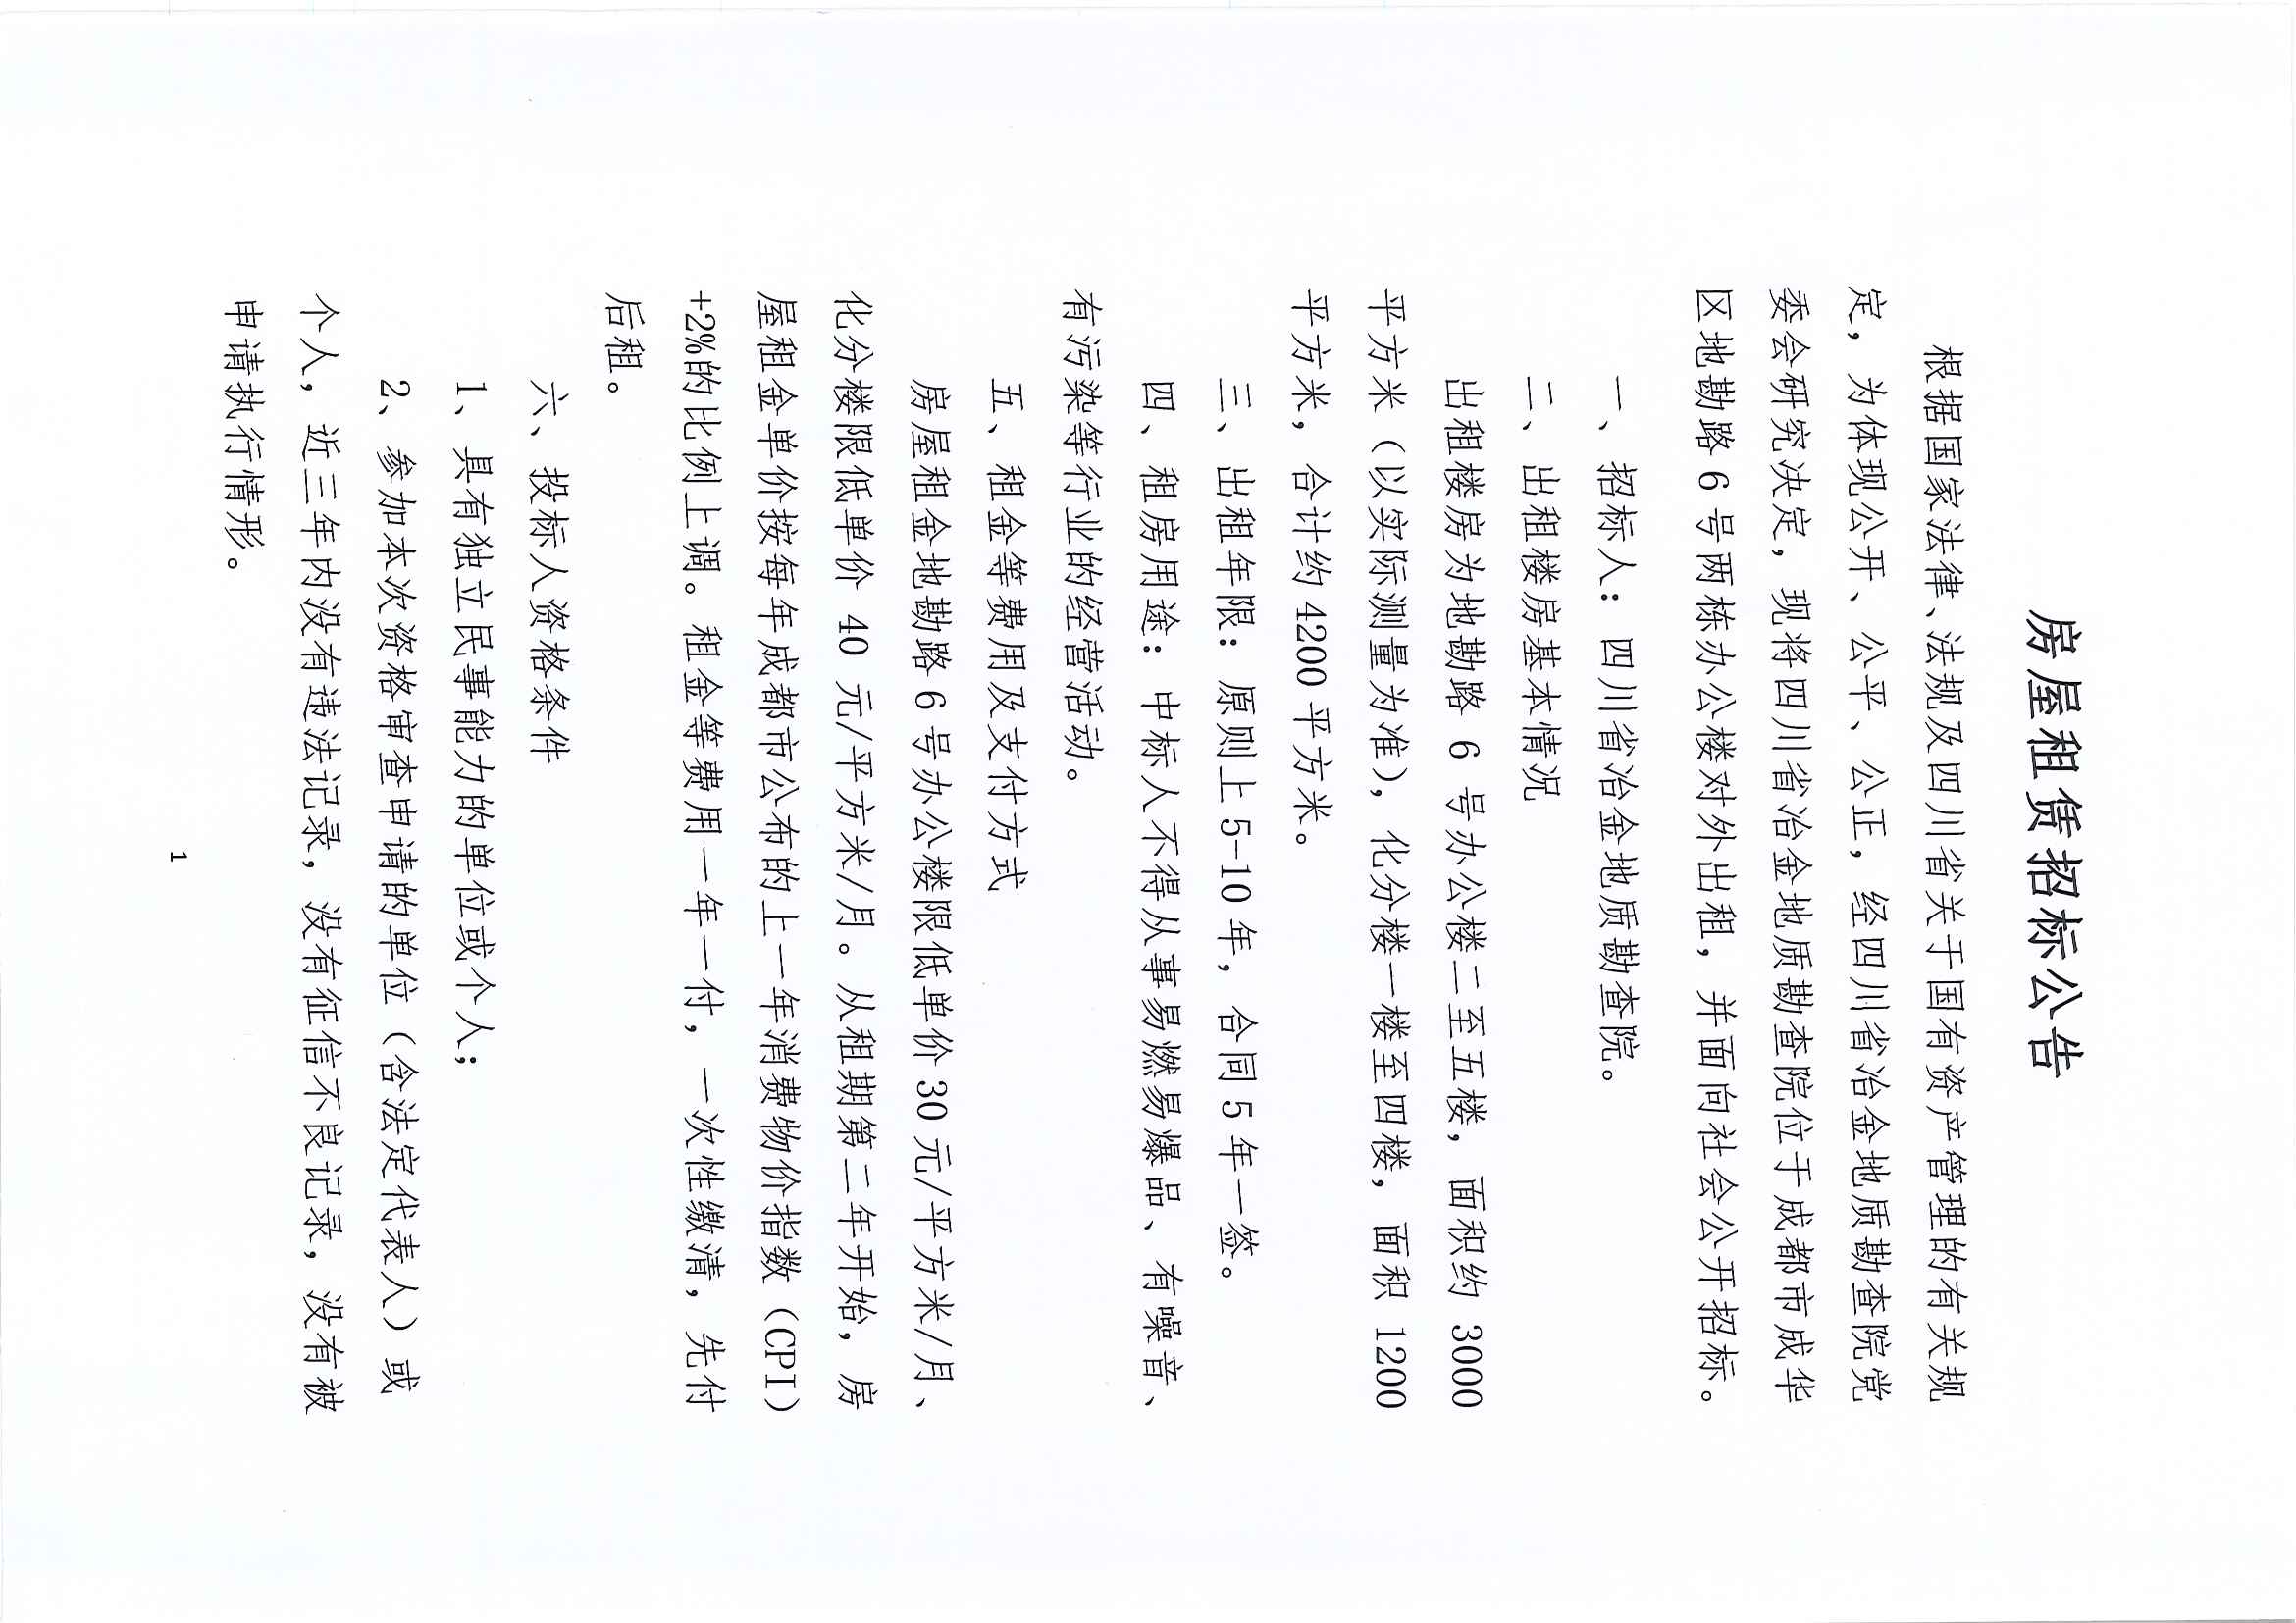 房屋租赁招标公告
根据国家法律、法规及四川省关于国有资产管理的有关规
定，为体现公开、公平、公正，经四川省冶金地质勘查院党
委会研究决定，现将四川省冶金地质勘查院位于成都市成华
区地勘路6号两栋办公楼对外出租，并面向社会公开招标。
一、招标人：四川省冶金地质勘查院。
二、出租楼房基本情况
出租楼房为地勘路 6 号办公楼二至五楼，面积约 3000
平方米（以实际测量为准），化分楼一楼至四楼，面积 1200
平方米，合计约4200平方米。
三、出租年限：原则上5-10年，合同5年一签。
四、租房用途：中标人不得从事易燃易爆品、有噪音、
有污染等行业的经营活动。
五、租金等费用及支付方式
房屋租金地勘路6号办公楼限低单价30元/平方米/月、
化分楼限低单价 40 元/平方米/月。从租期第二年开始，房
屋租金单价按每年成都市公布的上一年消费物价指数（CPI）
+2%的比例上调。租金等费用一年一付，一次性缴清，先付
后租。
六、投标人资格条件
1、具有独立民事能力的单位或个人；
2、参加本次资格审查申请的单位（含法定代表人）或
个人，近三年内没有违法记录，没有征信不良记录，没有被
申请执行情形。
1